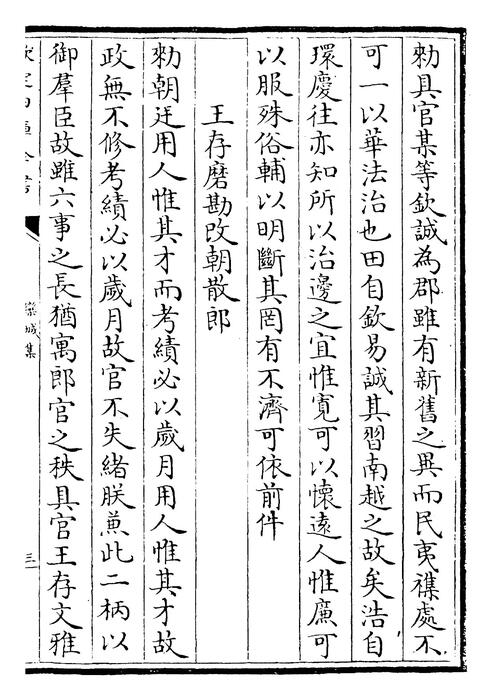 勑具官某等欽誠為郡雖有新舊之異而民夷襍處不
可一以華法治也田自欽易誠其習南越之故矣浩自
環慶往亦知所以治邊之宜惟寛可以懷遠人惟廉可
以服殊俗輔以明斷其罔有不濟可依前件
王存磨勘改朝散郎
勑朝廷用人惟其才而考績必以歲月用人惟其才故
政無不修考績必以歲月故官不失緒朕兼此二柄以
御羣臣故雖六事之長猶寓郎官之秩具官王存文雅
欽定四庫全書
欒城集
三